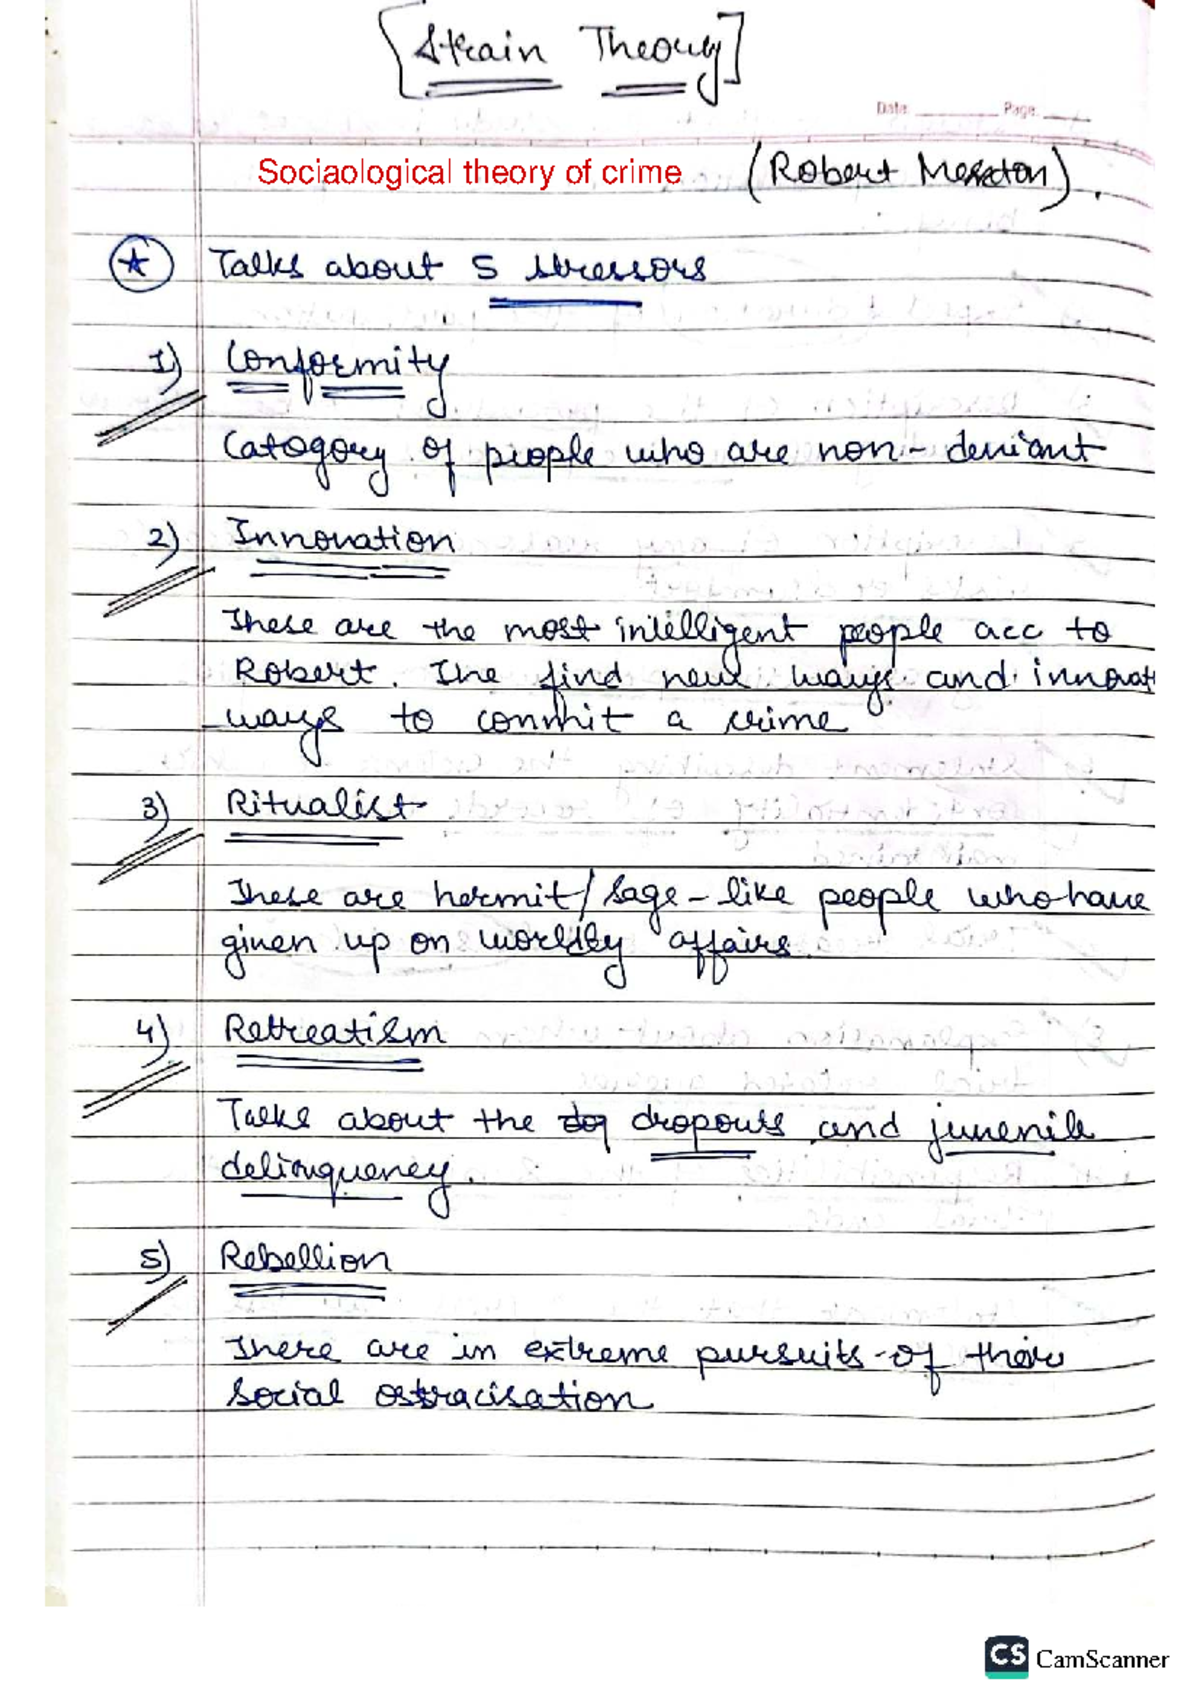 [Strain Theory]
Date: Page:
Sociaological theory of crime (Robert Merton).
Talks about 5 stressors
1) Conformity
Catogory of people who are non-deviant
2) Innovation
These are the most intelligent people acc to
Robert. The find new ways and innovat
ways to commit a crime
3) Ritualist
These are hermit/sage-like people who have
given up on worldly affairs.
4) Retreatism
Talks about the dropouts and juvenile
delinquency.
5) Rebellion
There are in extreme pursuits of their
social ostracisation
CS CamScanner